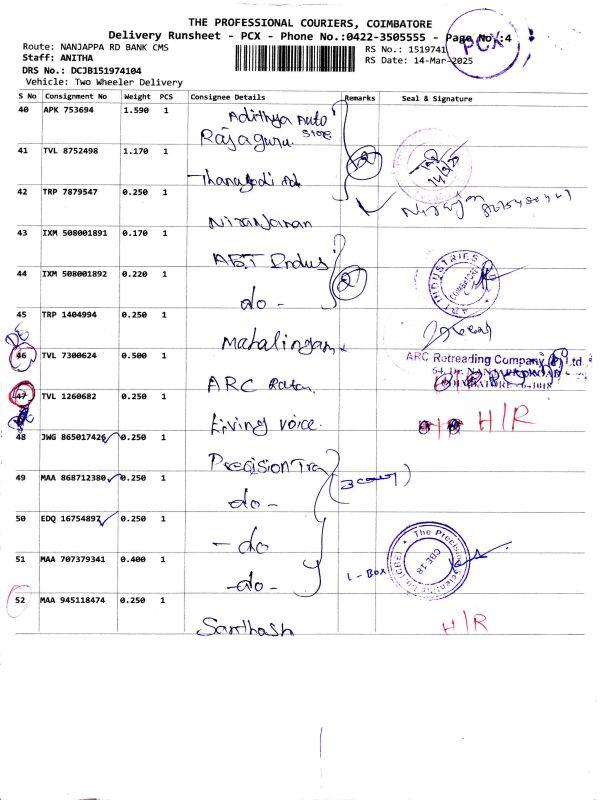 THE PROFESSIONAL COURIERS, COIMBATORE
Delivery Runsheet - PCX - Phone No.:0422-3505555 - Page No.:4
PCX
Route: NANJAPPA RD BANK CMS
RS No.: 1519741
Staff: ANITHA
RS Date: 14-Mar-2025
DRS No.: DCJB151974104
Vehicle: Two Wheeler Delivery
S No Consignment No Weight PCS Consignee Details Remarks Seal & Signature
40 APK 753694 1.590 1 Adithya Auto
Store
Rajaguru.
41 TVL 8752498 1.170 1
2
14/3/25
42 TRP 7879547 0.250 1
Niranjanan
43 IXM 508001891 0.170 1
ABT Indus
44 IXM 508001892 0.220 1
2
INDUSTRIES
do -
45 TRP 1404994 0.250 1
Mahalingam
46 TVL 7300624 0.500 1
ARC Retreading Company Ltd.
ARC
47 TVL 1260682 0.250 1
Living voice.
H/R
48 JWG 865017426 0.250 1
Precision Tra
49 MAA 868712380 0.250 1
do -
50 EDQ 16754897 0.250 1
- do
51 MAA 707379341 0.400 1
1 - Box
The Precision Scientific Co. (CBE)
CBE-18
-do-
52 MAA 945118474 0.250 1
Santhosh
H/R